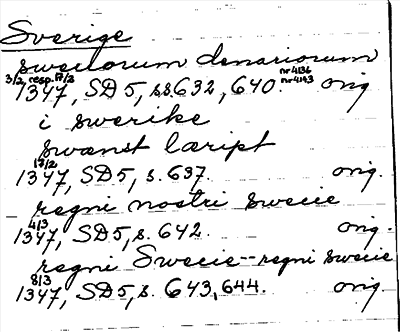 Sverige
sweuorum denariorum
3/2 resp. 17/3 nr 4136
1347, SD5, s.s. 632, 640 nr 4143 orig
i swerike
swænst læript
17/2
1347, SD5, s. 637. orig.
regni nostri swecie
4/3
1347, SD5, s. 642. orig.
regni Swecie -- regni swecie
8/3
1347, SD5, s. 643, 644. orig.